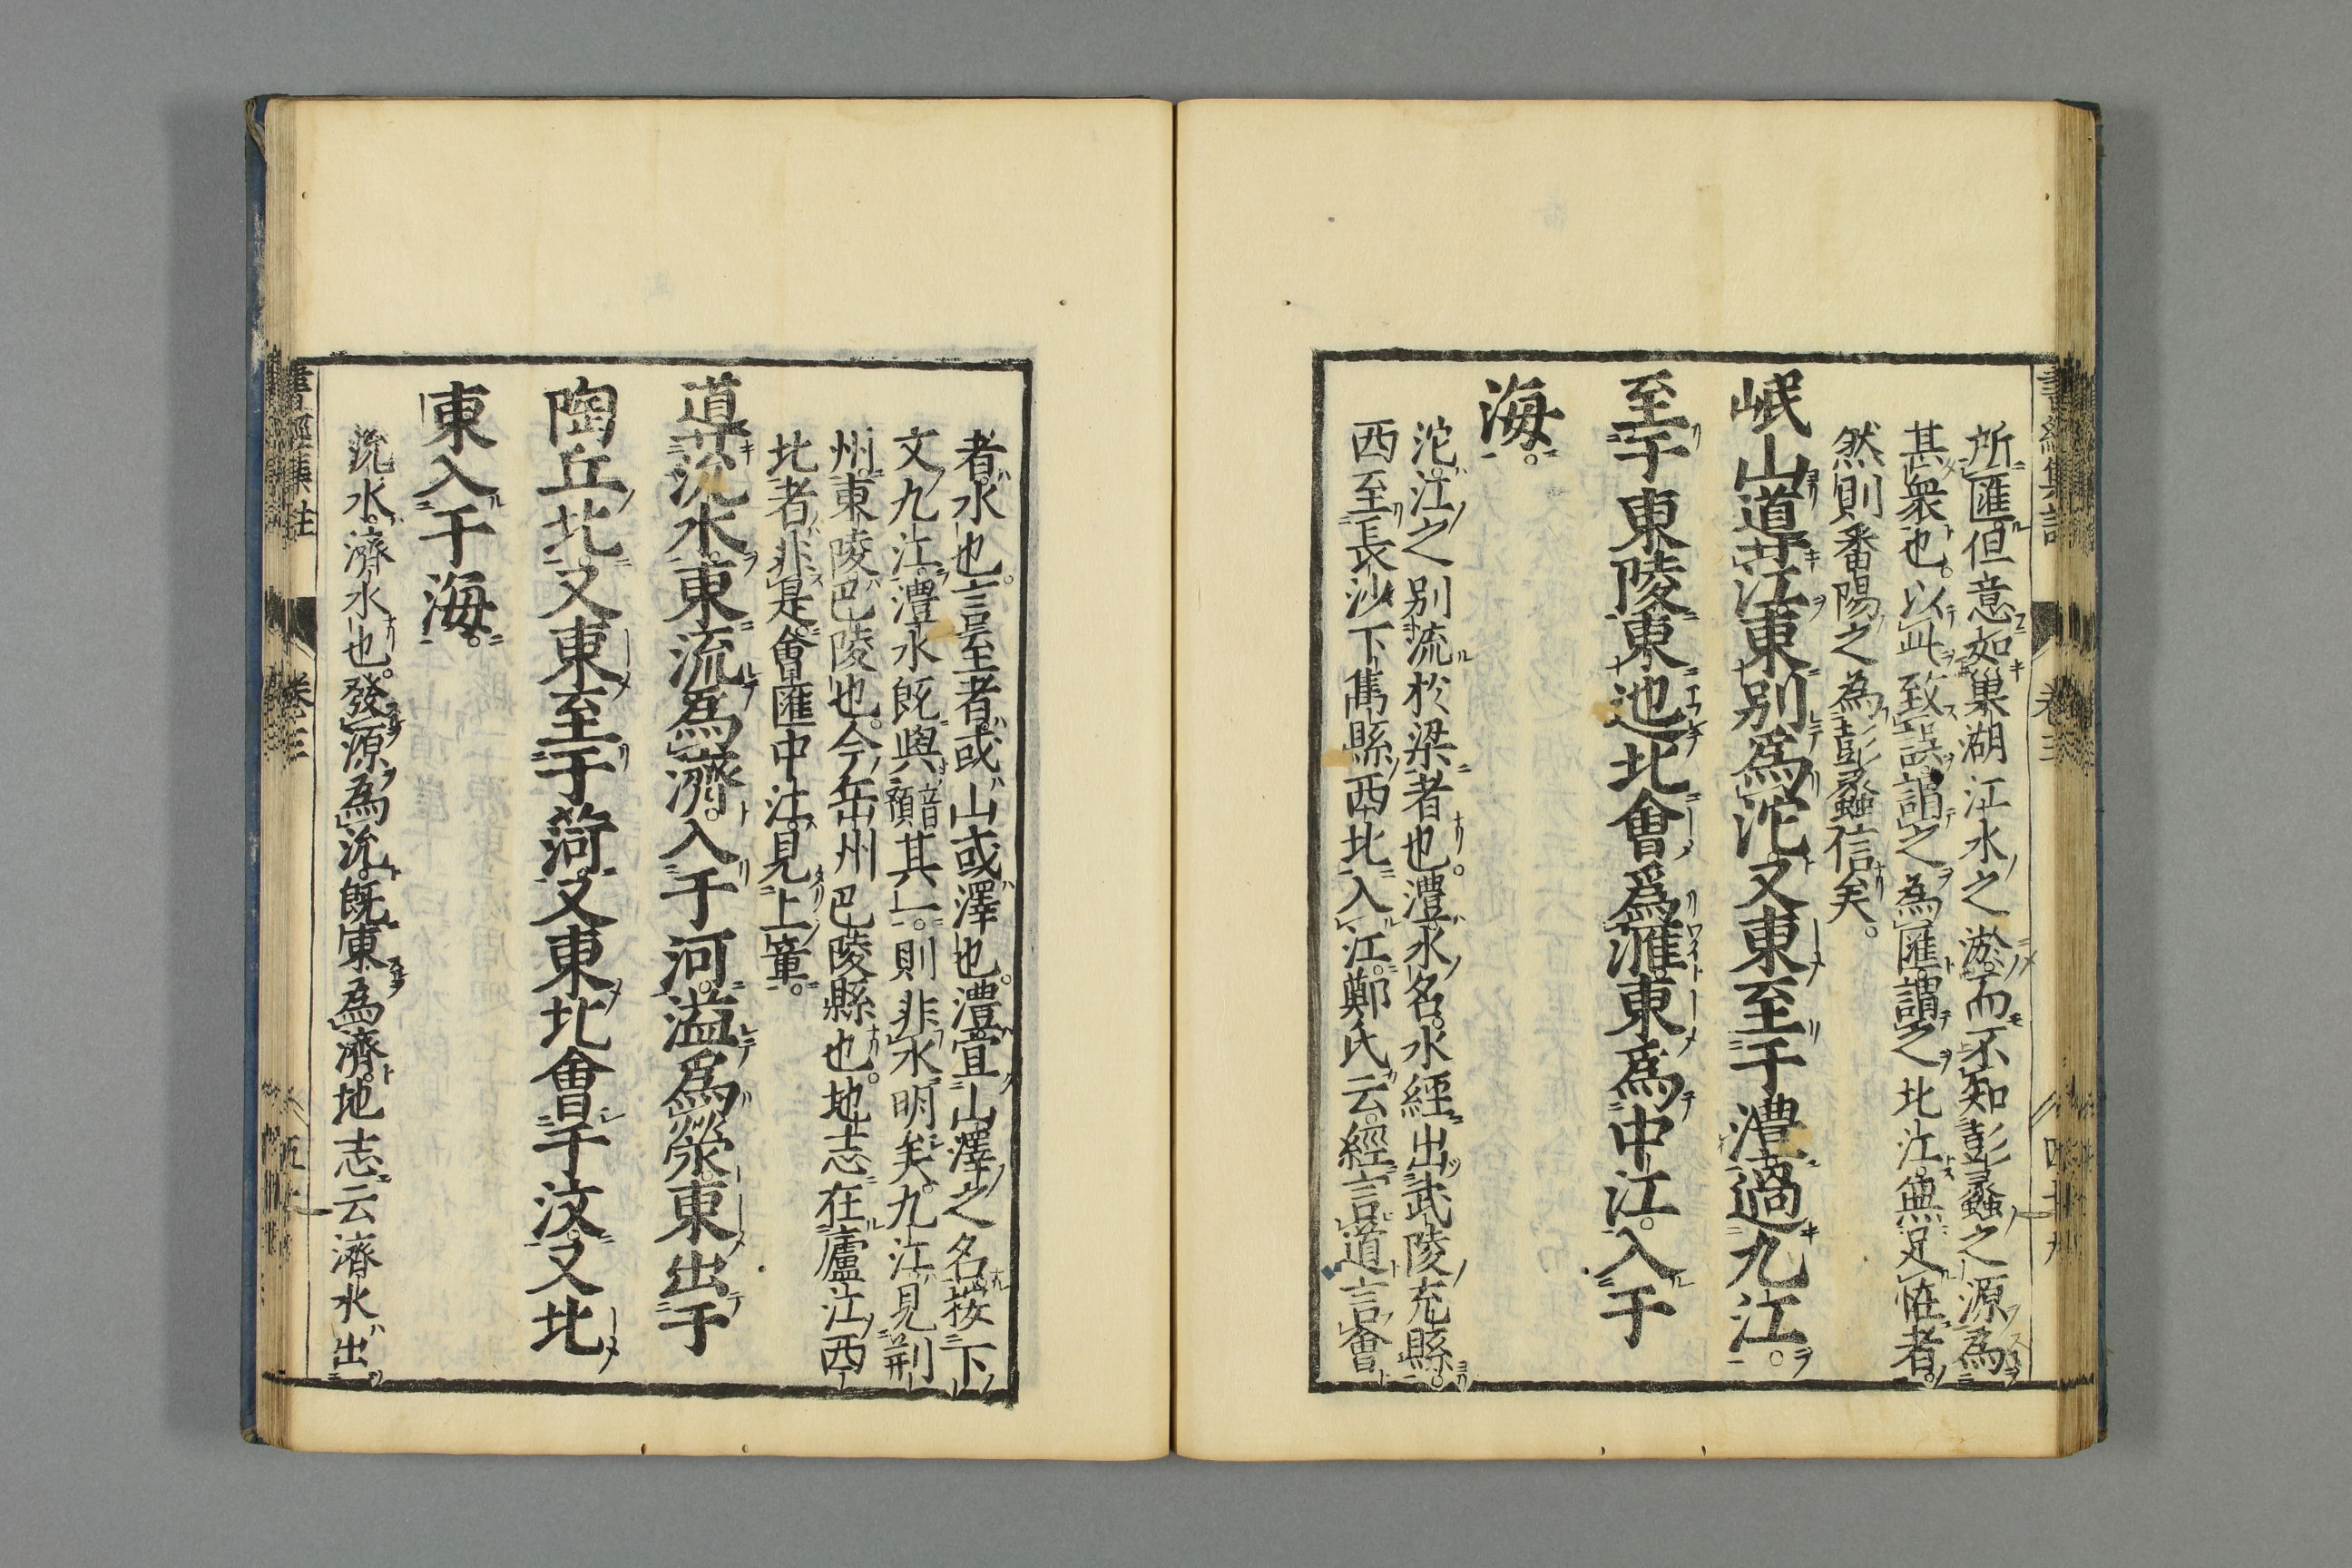 所匯但意如巢湖江水之淤而不知彭蠡之源爲
甚衆也。以此致誤謂之爲匯謂之北江無足恠者。
然則番陽之爲彭蠡信矣。
岷山導江東別爲沱又東至于澧過九江。
至于東陵東迆北會爲滙東爲中江入于
海。
沱江之別流於梁者也。澧水名。水經出武陵充縣。
西至長沙下雋縣西北入江鄭氏云經言道言會
者水也。言至者或山或澤也。澧宜山澤之名按下
文九江澧水既與䪴其一。則非水明矣。九江見荆
州東陵巴陵也。今岳州巴陵縣也。地志在廬江西
北者非是會匯中江見上章。
導沇水東流爲濟。入于河溢爲滎東出于
陶丘北又東至于菏又東北會于汶又北
東入于海。
沇水濟水也。發源爲沇既東爲濟地志云濟水出
書經集註
卷三